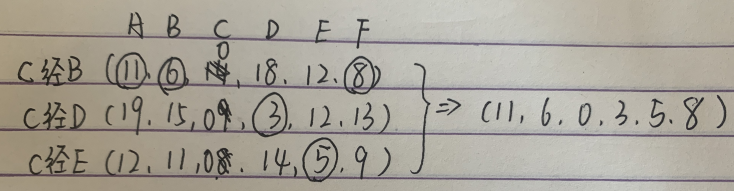 A B C D E F
C经B (11, 6, 0, 18, 12, 8)
C经D (19, 15, 0, 3, 12, 13) ⇒ (11, 6, 0, 3, 5, 8)
C经E (12, 11, 0, 14, 5, 9)